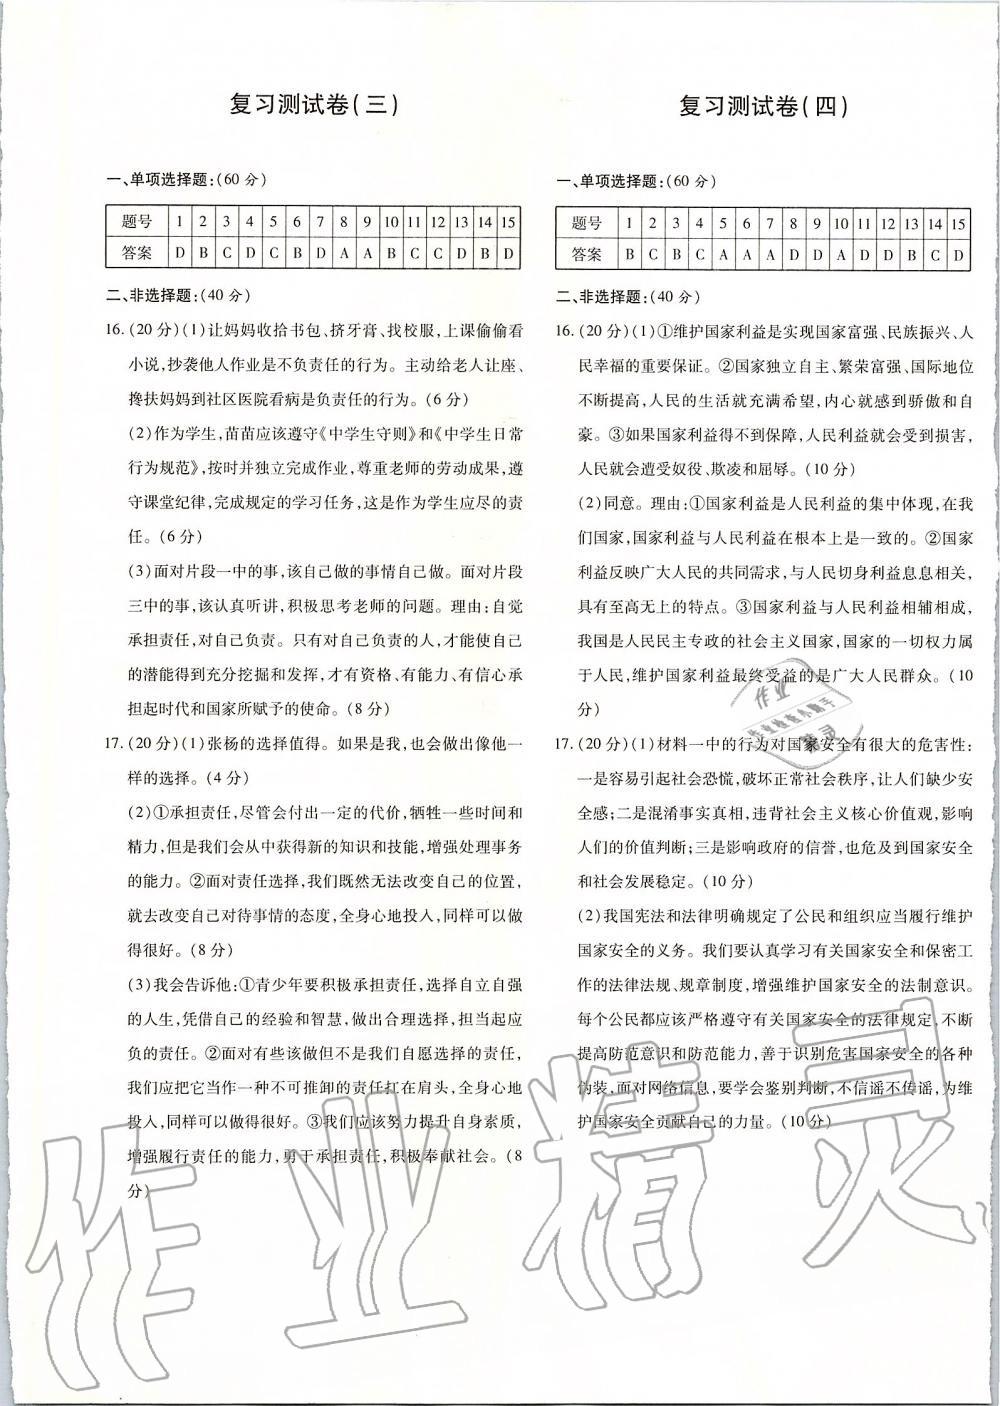 复习测试卷(三)
一、单项选择题:(60 分)
题号 1 2 3 4 5 6 7 8 9 10 11 12 13 14 15
答案 D B C D C B D A A B C C D B D
二、非选择题:(40 分)
16.(20 分)(1)让妈妈收拾书包、挤牙膏、找校服,上课偷偷看
小说,抄袭他人作业是不负责任的行为。主动给老人让座、
搀扶妈妈到社区医院看病是负责任的行为。(6 分)
(2)作为学生,苗苗应该遵守《中学生守则》和《中学生日常
行为规范》,按时并独立完成作业,尊重老师的劳动成果,遵
守课堂纪律,完成规定的学习任务,这是作为学生应尽的责
任。(6 分)
(3)面对片段一中的事,该自己做的事情自己做。面对片段
三中的事,该认真听讲,积极思考老师的问题。理由:自觉
承担责任,对自己负责。只有对自己负责的人,才能使自己
的潜能得到充分挖掘和发挥,才有资格、有能力、有信心承
担起时代和国家所赋予的使命。(8 分)
17.(20 分)(1)张杨的选择值得。如果是我,也会做出像他一
样的选择。(4 分)
(2)①承担责任,尽管会付出一定的代价,牺牲一些时间和
精力,但是我们会从中获得新的知识和技能,增强处理事务
的能力。②面对责任选择,我们既然无法改变自己的位置,
就去改变自己对待事情的态度,全身心地投入,同样可以做
得很好。(8 分)
(3)我会告诉他:①青少年要积极承担责任,选择自立自强
的人生,凭借自己的经验和智慧,做出合理选择,担当起应
负的责任。②面对有些应该做但不是我们自愿选择的责任,
我们应把它当作一种不可推卸的责任扛在肩头,全身心地
投入,同样可以做得很好。③我们应该努力提升自身素质,
增强履行责任的能力,勇于承担责任,积极奉献社会。(8
分)
复习测试卷(四)
一、单项选择题:(60 分)
题号 1 2 3 4 5 6 7 8 9 10 11 12 13 14 15
答案 B C B C A A A D D A D D B C D
二、非选择题:(40 分)
16.(20 分)(1)①维护国家利益是实现国家富强、民族振兴、人
民幸福的重要保证。②国家独立自主、繁荣富强、国际地位
不断提高,人民的生活就充满希望,内心就感到骄傲和自
豪。③如果国家利益得不到保障,人民就会受到损害,
人民就会遭受奴役、欺凌和屈辱。(10 分)
(2)同意。理由:①国家利益是人民利益的集中体现,在我
们国家,国家利益与人民利益在根本上是一致的。②国家
利益反映广大人民的共同需求,与人民切身利益息息相关,
具有至高无上的特点。③国家利益与人民利益相辅相成,
我国是人民民主专政的社会主义国家,国家的一切权力属
于人民,维护国家利益最终受益的是广大人民群众。(10
分)
17.(20 分)(1)材料一中的行为对国家安全有很大的危害性:
一是容易引起社会恐慌,破坏正常社会秩序,让人们缺少安
全感;二是混淆事实真相,违背社会主义核心价值观,影响
人们的价值判断;三是影响政府的信誉,也危及到国家安全
和社会发展稳定。(10 分)
(2)我国宪法和法律明确规定了公民和组织应当履行维护
国家安全的义务。我们要认真学习有关国家安全和保密工
作的法律法规、规章制度,增强维护国家安全的法制意识。
每个公民都应该严格遵守有关国家安全的法律规定,不断
提高防范意识和防范能力,善于识别危害国家安全的各种
伪装,面对网络信息,要学会鉴别判断,不信谣不传谣,为维
护国家安全贡献自己的力量。(10 分)
作业
作业检查小助手
精灵
作业精灵